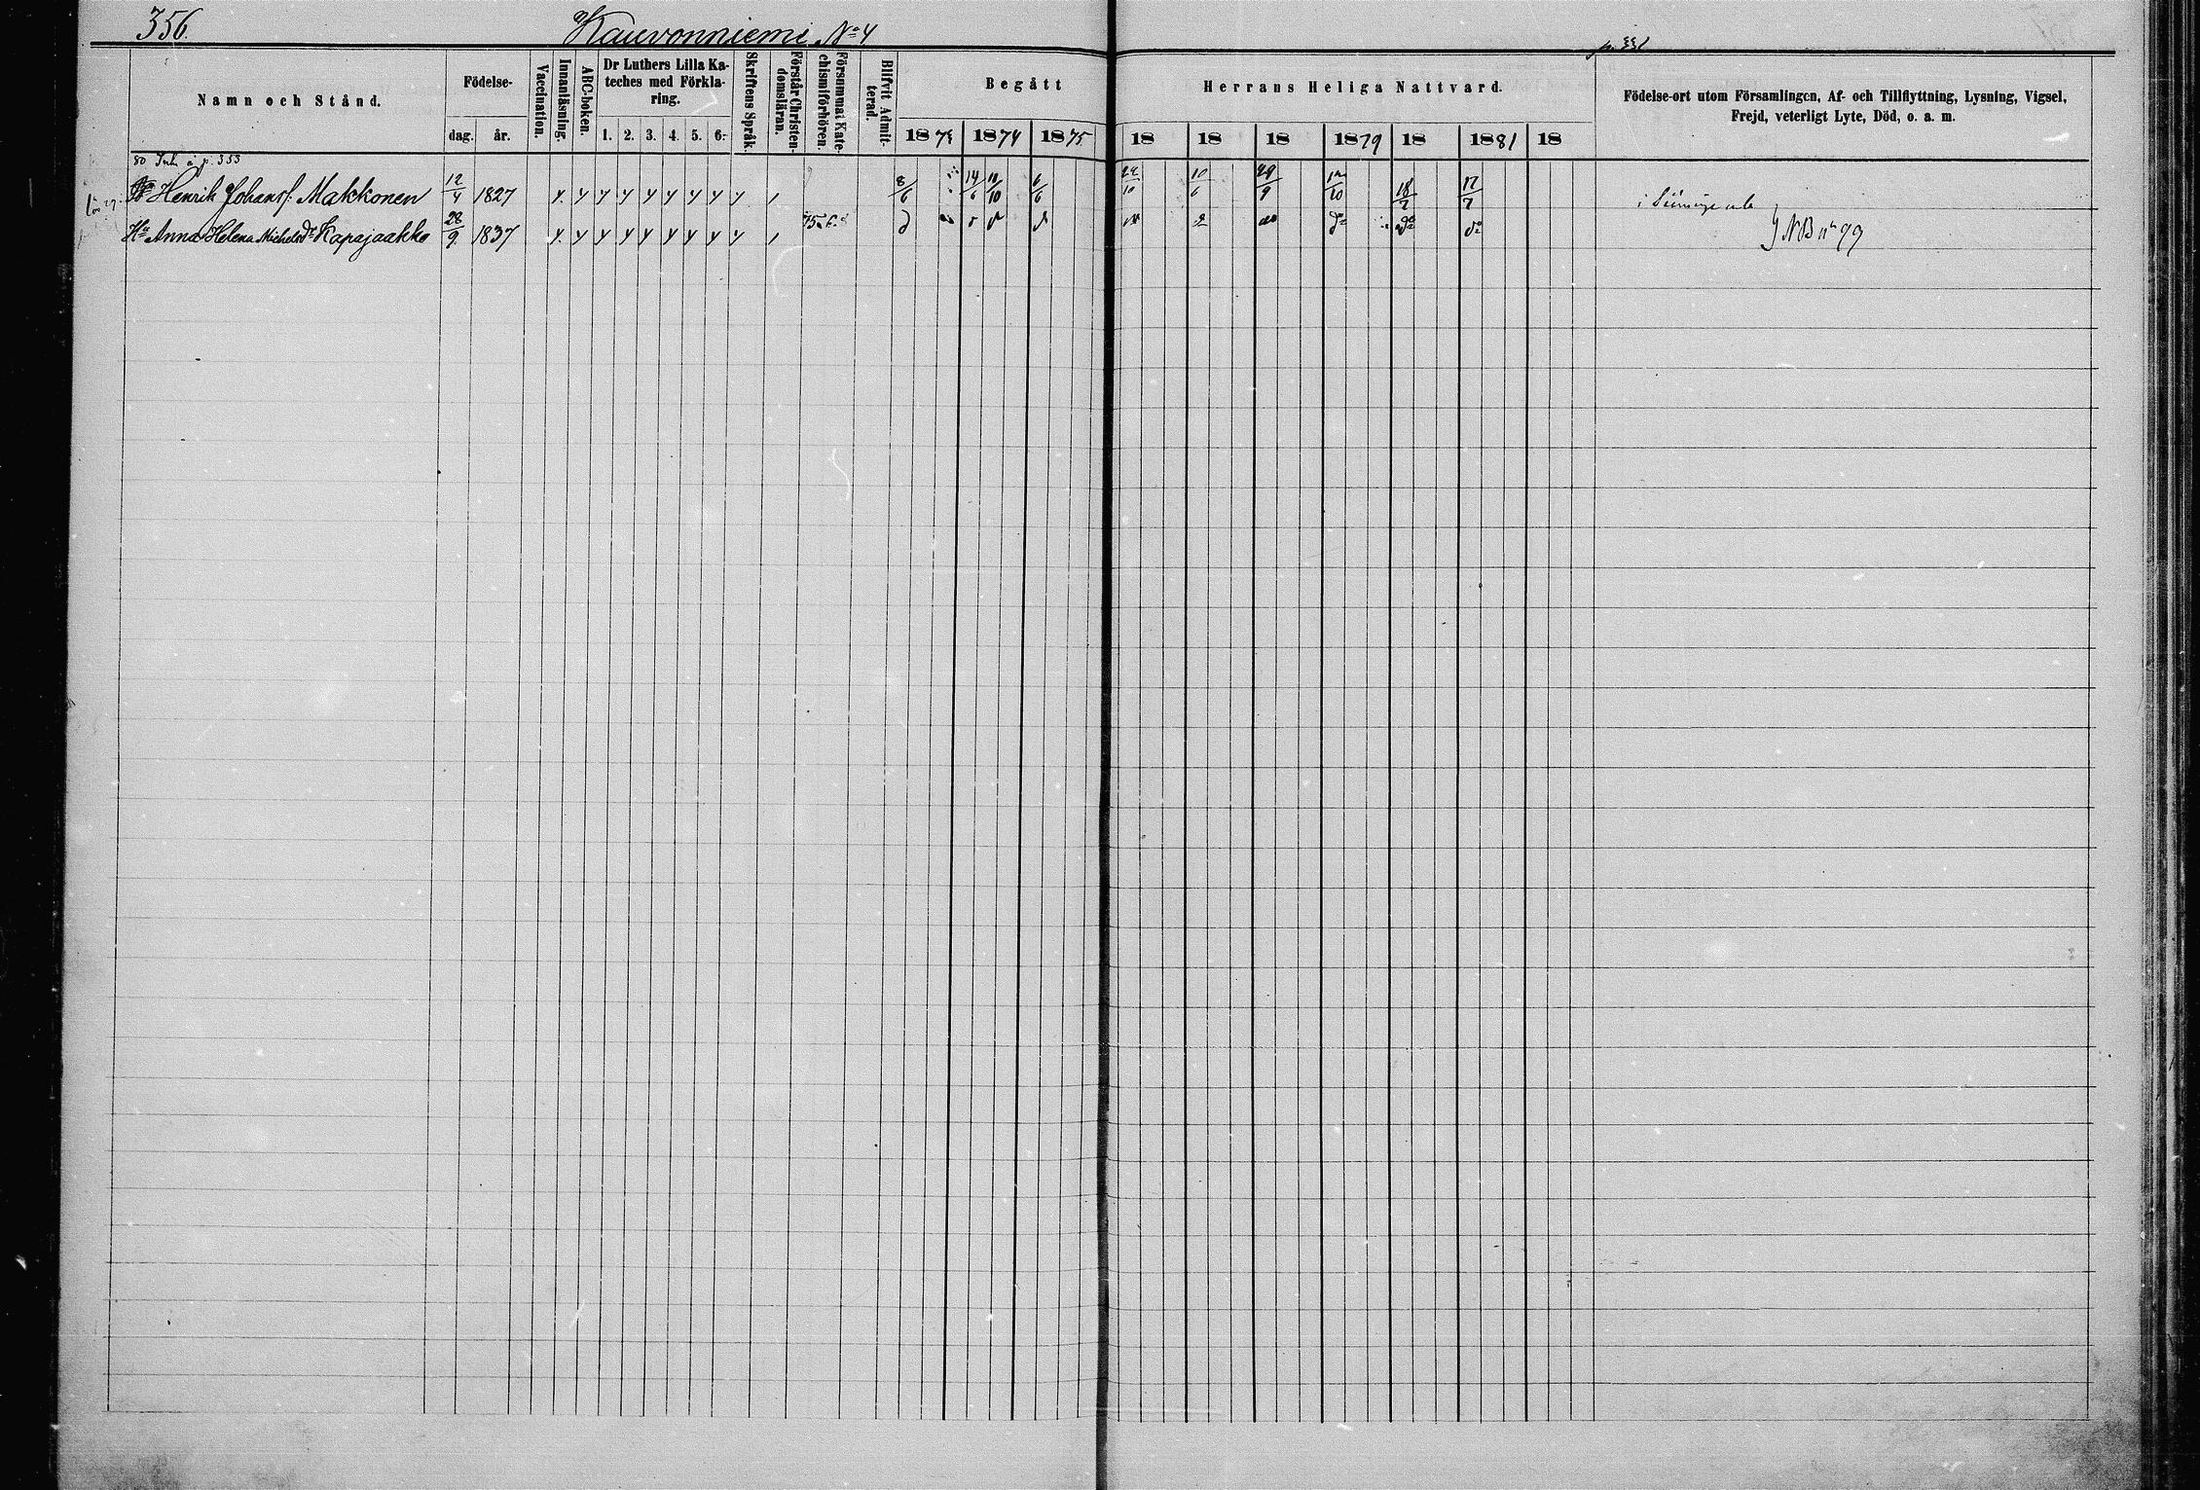 356. Kauvonniemi No 4
Namn och Stånd.
Födelse-
dag. år.
Vaccination.
Innanläsning.
ABC-boken.
Dr Luthers Lilla Ka-
teches med Förkla-
ring.
1. 2. 3. 4. 5. 6.
Skriftens Språk.
Förstår Christen-
domsläran.
Försummat Kate-
chismiförhören.
Blifvit Admit-
terad.
Begått Herrans Heliga Nattvard.
1874 1875 18 18 18 1879 18 1881 18
Födelse-ort utom Församlingen, Af- och Tillflyttning, Lysning, Vigsel,
Frejd, veterligt Lyte, Död, o. a. m.
p. 353
Henrik Johansf. Makkonen 12/4 1827 8/6 14/6 10/10 6/6 10/6 29/9 12/10 18/7 17/7
Hu Anna Helena Michelsdr Kapajaakko 28/9 1837 75. do do do
NB no 99